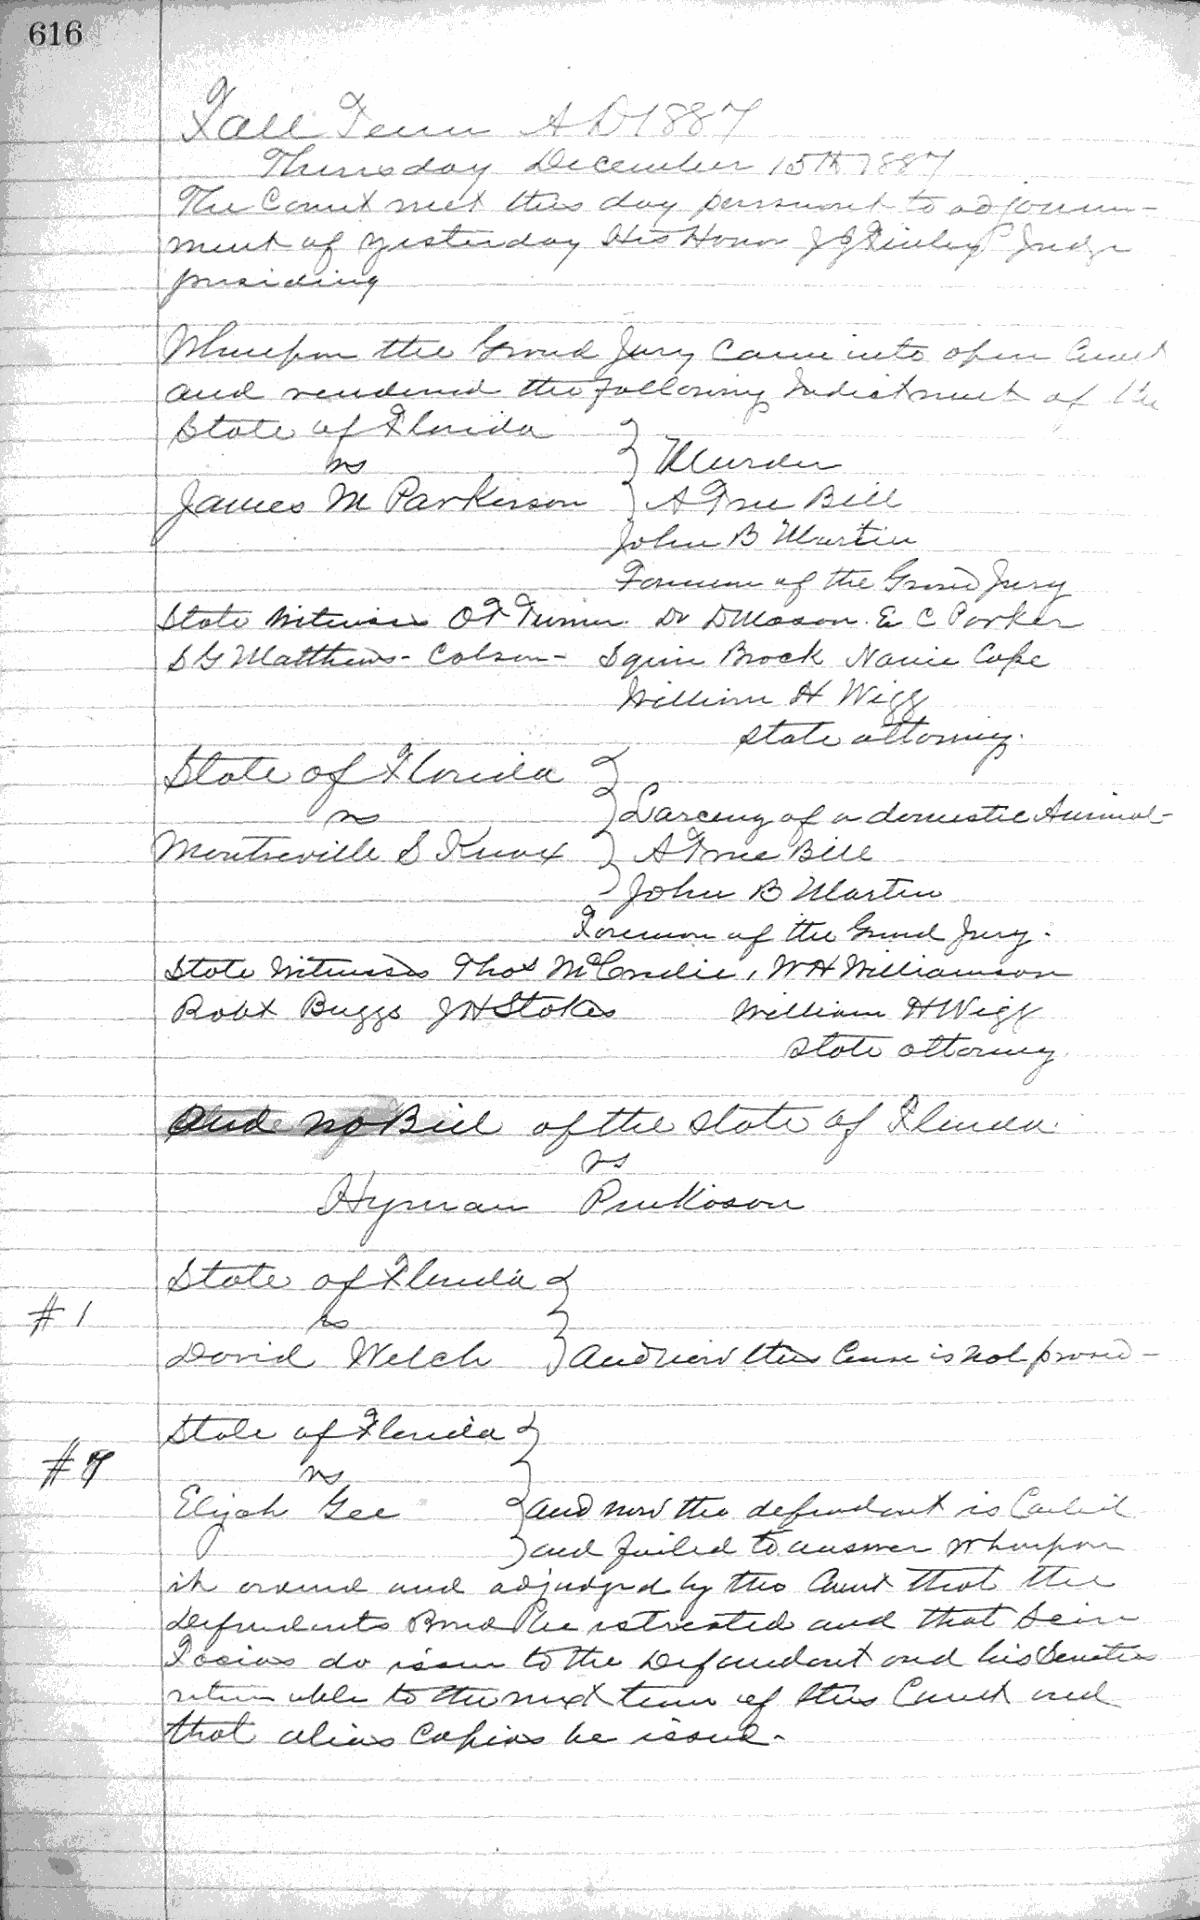 616
Fall Term A D 1887
Thursday December 15th 1887
The Court met this day persuant to adjourn-
ment of yesterday His Honor J J Finley Judge
presiding
Whereupon the Grand Jury Came into open Court
and rendered the following Indictment of the
State of Florida
vs
Murder
James M Parkerson
A True Bill
John B Martin
Foreman of the Grand Jury
State Witnesses O F Turner Dr D Mason E C Parker
S G Matthews - Colson - Squire Brock Nanie Cope
William H Wigg
State attorney.
State of Florida
vs
Larceny of a domestic Animal-
Montreville S Knox
A True Bill
John B Martin
Foreman of the Grand Jury.
State Witnesses Thos W H Williamson
Robt Buggs J H Stokes William H Wigg
State attorney.
And no Bill of the State of Florida
vs
Hyman Pinkoson
State of Florida
#1
vs
David Welch And now this Cause is Nol prosed -
State of Florida
#7
vs
Elijah Gee and now the defendant is Called
and failed to answer Whereupon
it ordered and adjudged by the Court that the
Defendants Bond be estreated and that Scire
Facias do issue to the Defendant and his Sureties
returnable to the next term of this Court and
that alias Capias be issued.-